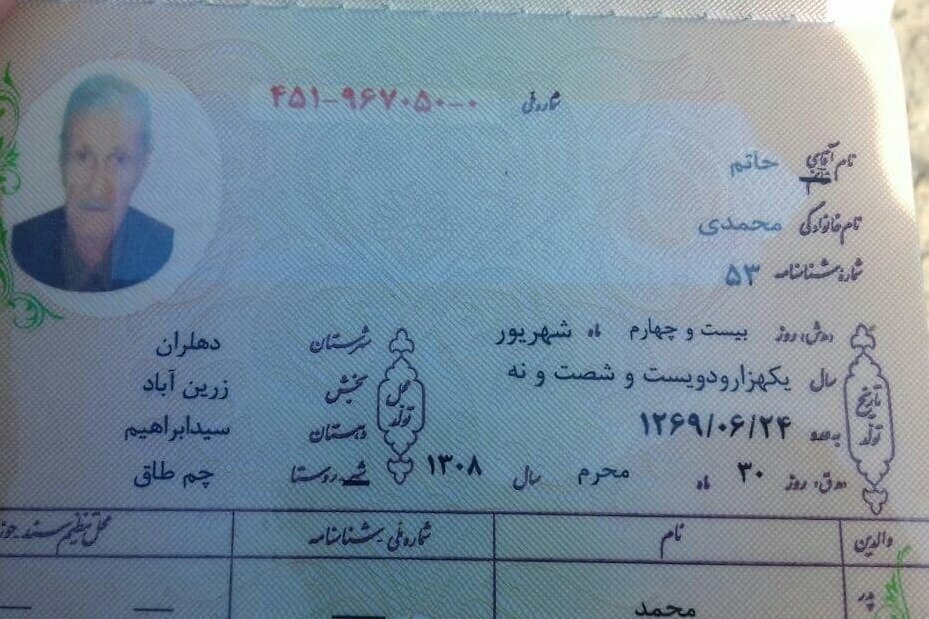 شماره ملی ۴۵۱-۹۶۷۰۵۰-۰
نام آقای حاتم
نام خانوادگی محمدی
شماره شناسنامه ۵۳
تاریخ تولد
روز بیست و چهارم ماه شهریور
سال یکهزارودویست و شصت و نه
۱۲۶۹/۰۶/۲۴
روز ۳۰ ماه محرم سال ۱۳۰۸
محل تولد
شهرستان دهلران
بخش زرین آباد
دهستان سیدابراهیم
شهر-روستا چم طاق
والدین نام شماره ملی-شناسنامه محل تنظیم سند-حوزه
پدر محمد